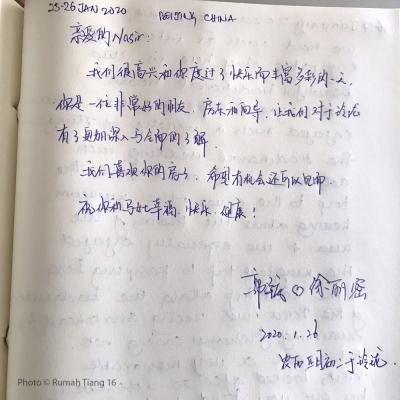 25-26 JAN 2020 BEIJING CHINA
亲爱的Nasir:
我们很高兴和你度过了快乐而丰富多彩的一天.
你是一位非常好的朋友、房东和向导, 让我们对于怡保
有了更加深入与全面的了解.
我们喜欢你的房子, 希望有机会还可以见面.
祝你和马如幸福、快乐、健康!
郭 ♡ 徐丽
2020.1.26
农历正月初二于怡保.
Photo © Rumah Tiang 16